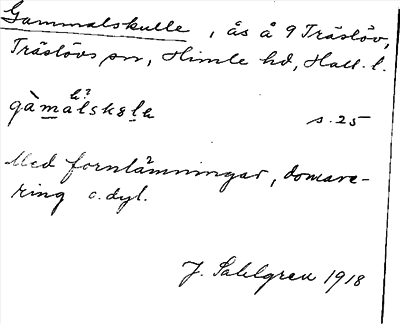 Gammalskulle, ås å 9 Träslöv,
Träslövs sn, Himle hd, Hall. l.
s. 25
Med fornlämningar, domare-
ring o.dyl.
J. Sahlgren 1918